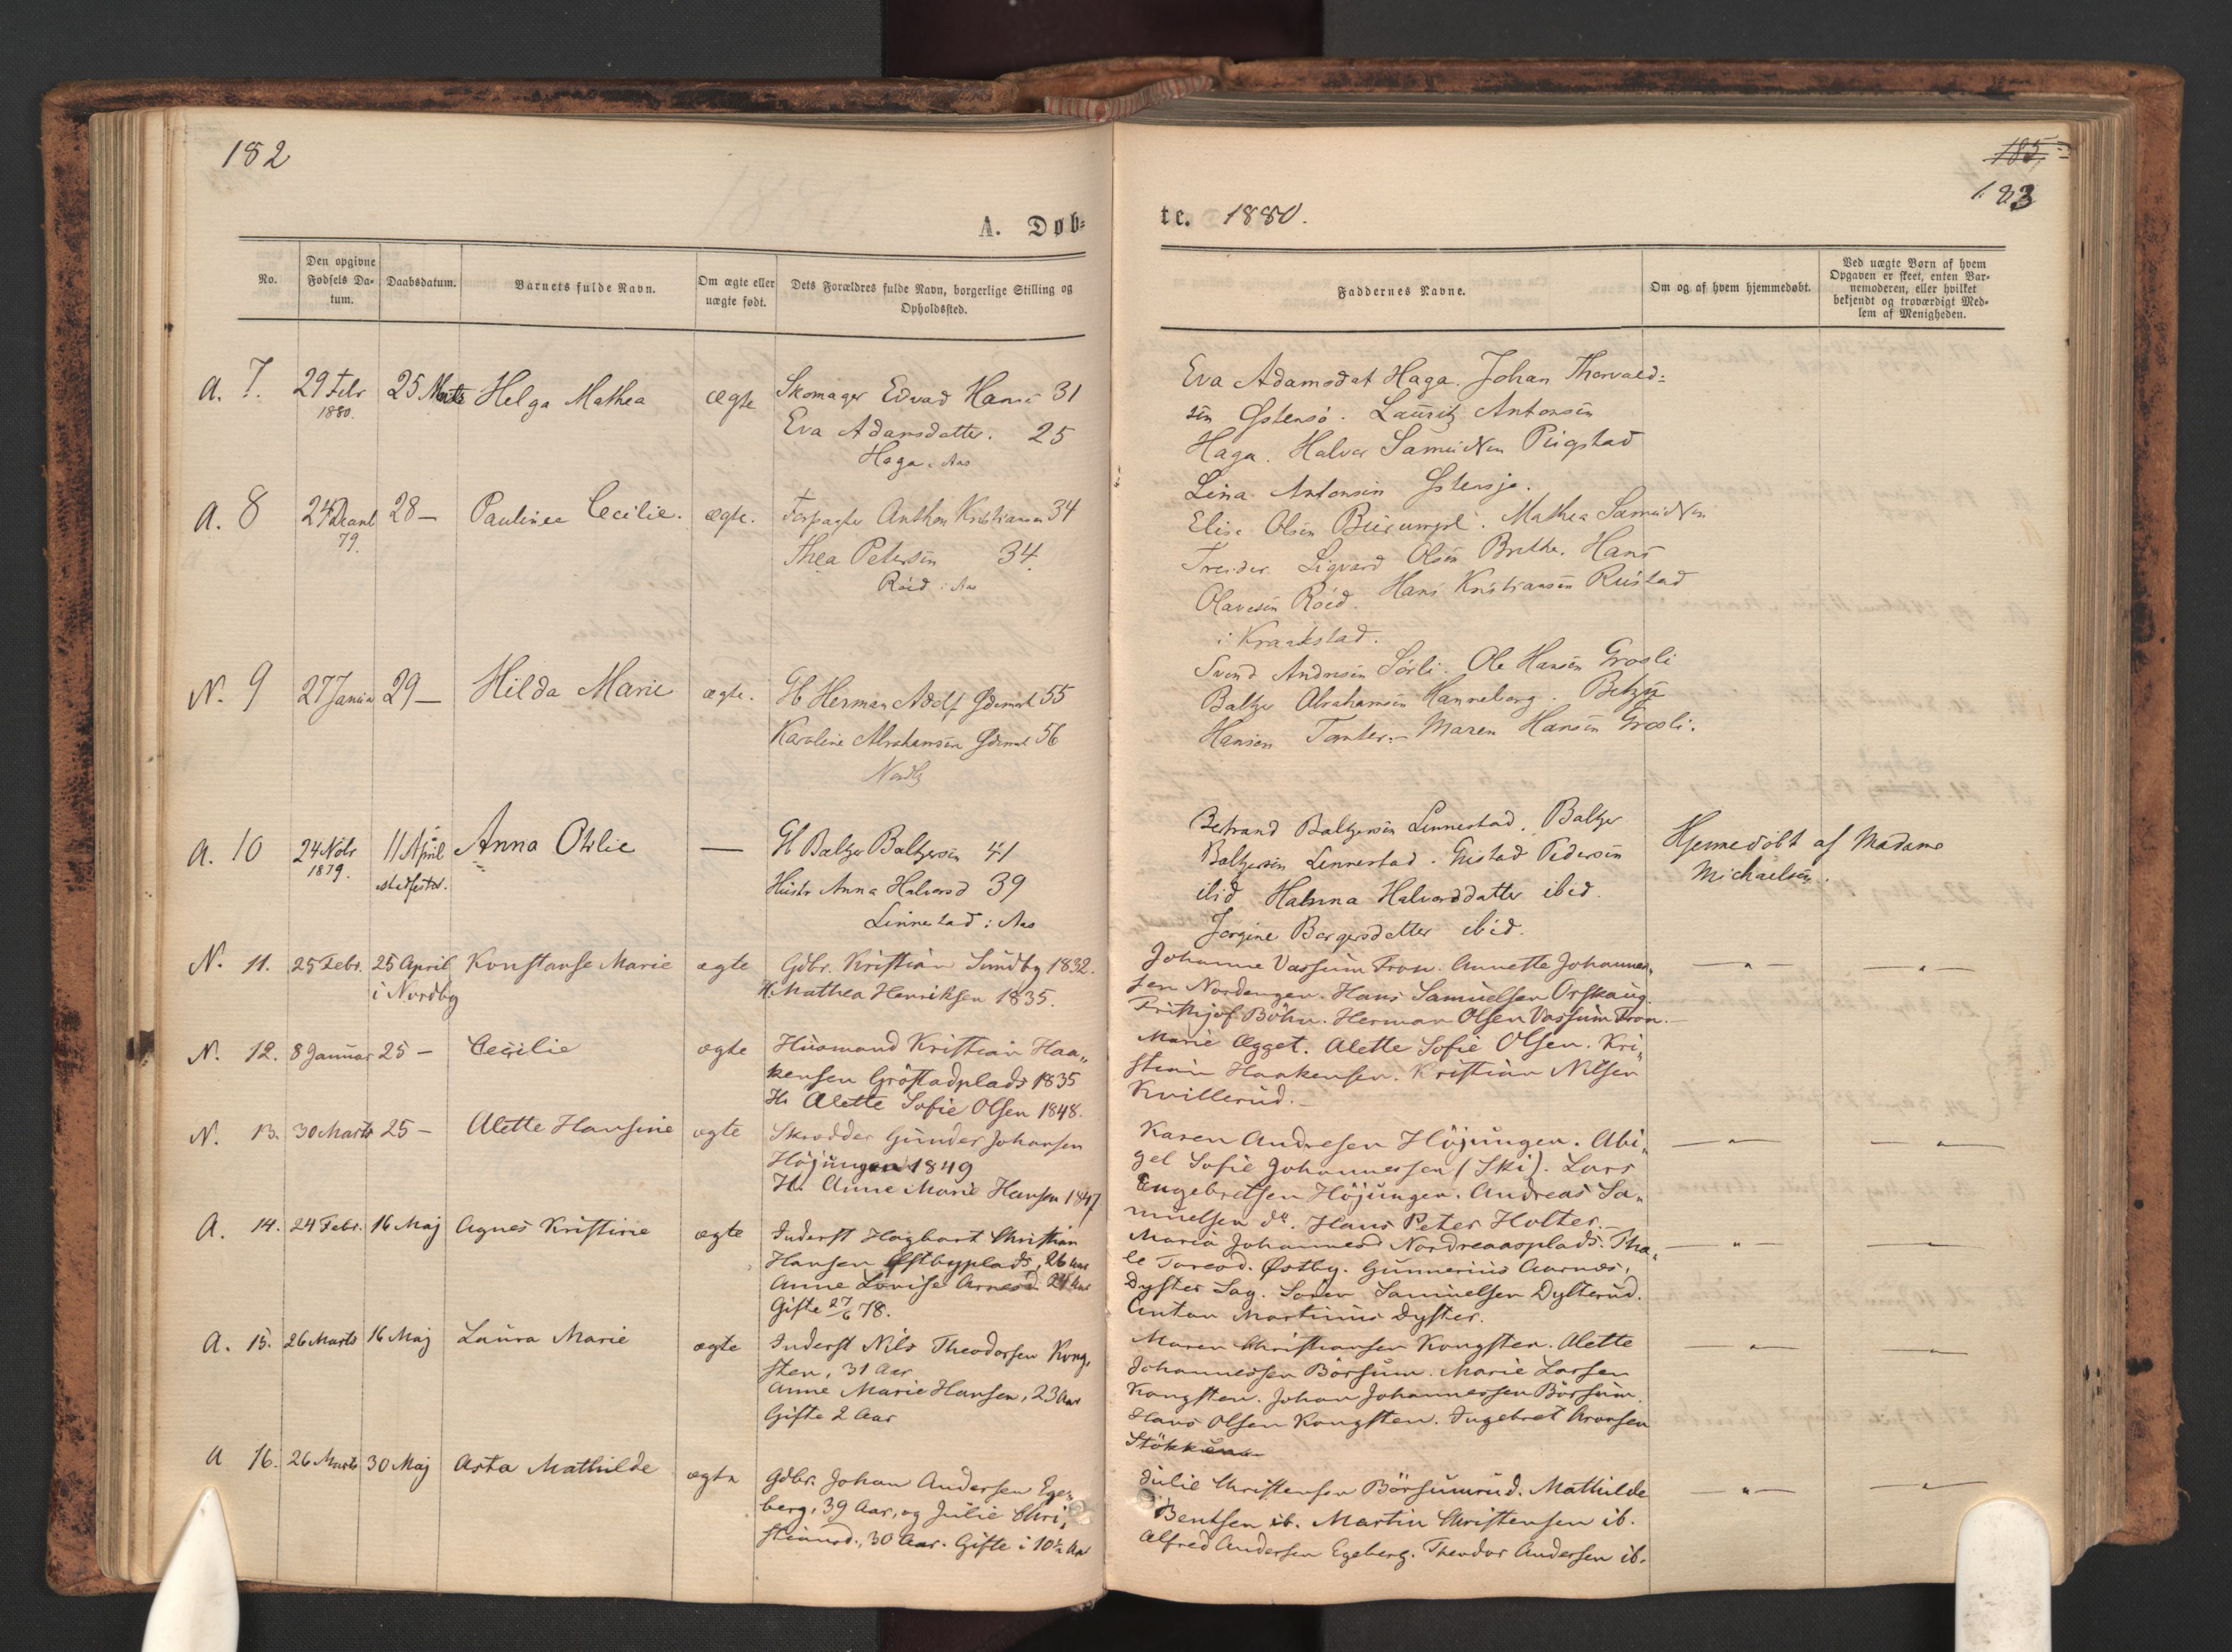 182
A. Døb-
No.
Den opgivne Fødsels Da-tum.
Daabsdatum.
Barnets fulde Navn.
Om ægte eller uægte født.
Dets Forældres fulde Navn, borgerlige Stilling og Opholdssted.
A. 7. 29 Febr 1880. 25 Marts Helga Mathea ægte Skomager Edvard Hansen 31
Eva Adamsdatter. 25
Haga i Aas
A. 8 28 — Cecilie. ægte. Forpagter Anthon Kristiansen 34
79.
Thea Petersen 34.
Røed i Aas
N. 9 27 Januar 29 — Hilda Marie ægte. Herman Adolf 55
Karoline Abrahamsen 56
Nordby
A. 10 24 Nobr 1879. 11 April stadfestet. Anna Otilie — Baltzer Baltzersen 41
Hustr Anna Halvorsd 39
Linnestad i Aas
N. 11. 25 Febr. 25 April i Nordby Konstanse Marie ægte Gdbr. Kristian Sundby 1832.
H. Mathea Henriksen 1835.
N. 12. 8 Januar 25 — Cecilie ægte Husmand Kristian Haa„
kensen Gröstadplads 1835
H. Alette Sofie Olsen 1848.
N. 13. 30 Marts 25 — Alette Hansine ægte Skrædder Gunder Johansen
Höjungen 1849
H. Anne Marie Hansen 1847
A. 14. 24 Febr. 16 Maj Agnes Kristine ægte Inderst Hagbart Christian
Hansen Østbyplads, 26 Aar
Anne Lovise Arnesd. 24 Aar
Gifte 27/6 78.
A. 15. 26 Marts 16 Maj Laura Marie ægte Inderst Nils Theodorsen Kong„
sten, 31 Aar
Anne Marie Hansen, 23 Aar
Gifte 2 Aar
A 16. 26 Marts 30 Maj Asta Mathilde ægte Gdbr. Johan Andersen Ege„
berg, 39 Aar, og Julie Chri„
stiansd., 30 Aar. Gifte i 10½ Aar
185
183
te. 1880.
Faddernes Navne.
Om og af hvem hjemmedøbt.
Ved uægte Børn af hvem Opgaven er skeet, enten Bar-nemoderen, eller hvilket bekjendt og troværdigt Med-lem af Menigheden.
Eva Adamsdat Haga. Johan Thorvald-
sen Østensø. Lauritz Antonsen
Haga. Halvor Samuelsen
Lina Antonsen Østensjø.
Elise Olsen Mathea Samuelsen
Sigvard Olsen Hans
Olavesen Røed. Hans Kristiansen Rustad
i Kraakstad.
Svend Andresen Sörli. Ole Hansen Grosli
Baltzer Abrahamsen Hanneborg.
Hansen Tomter. — Maren Hansen Grosli.
Bertrand Baltzersen Linnestad. Baltzer Hjemmedöbt af Madame
Baltzersen Linnestad. Pedersen Michaelsen.
ibid Halvorsdatter ibid.
Jorgine Borgersdatter ibid.
Johanne Vassum Fron. Annette Johannes„ — „ — — „ —
sen Nordengen. Hans Samuelsen Orskaug.
Frithjof Böhn. Herman Olsen Vassum Fron. —
Marie Ægget. Alette Sofie Olsen. Kri„
stian Haakensen. Kristian Nilsen
Kvillerud. —
Karen Andresen Höjungen. Abi„ — „ — — „ —
gel Sofie Johannessen (Ski). Lars
Engebretsen Höjungen. Andreas Sa„
muelsen do. Hans Peter Holter. —
Maria Johannesd Nordreaasplads. Tha„ — „ — — „ —
le Toresd. Østby. Gunnerius Aarnæs,
Dyster Sag. Søren Samuelsen Dylterud.
Anton Martinius Dyster.
Maren Christiansen Kongsten. Alette — „ — — „ —
Johannessen Börsum. Marie Larsen
Kongsten. Johan Johannessen Börsum.
Hans Olsen Kongsten. Ingebret Aronsen
Julie Christensen Börsumrud. Mathilde — „ — — „ —
Bentsen ib. Martin Christensen ib.
Alfred Andersen Egeberg. Theodor Andersen ib.